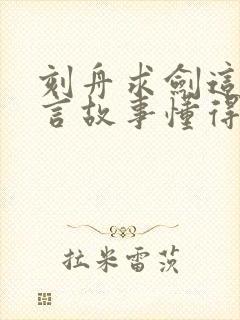 刻舟求劍這
言故事懂得
拉米雷茨